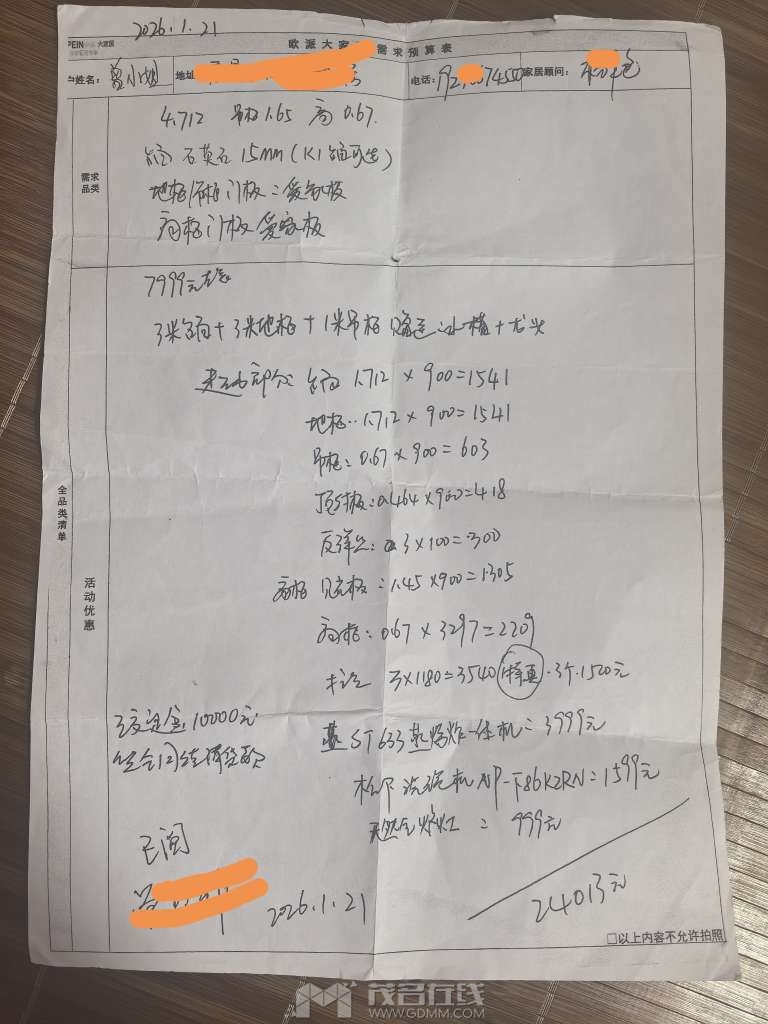 2026.1.21
PEIN 大家居
欧派大家 需求预算表
姓名: 曾小姐 地址 电话: 家居顾问:
需求品类
4.712 吊柜1.65 高0.67.
石英石15mm(K1
地柜 门板:爱家板
高柜门板爱家板
7999元
3米台面+3米地柜+1米吊柜 赠送 水槽+龙头
超出部分 台面1.712×900=1541
地柜:1.712×900=1541
吊柜:0.67×900=603
顶封板:0.464×900=418
反弹器:3×100=300
高柜见光板:1.45×900=1305
高柜:0.67×3297=2209
3×1180=3540 ·3个·1520元
ST633蒸烤炸一体机=3999元
松下洗碗机NP-F86K2RN=1599元
天然气炉灶=999元
24013元
全品类清单
活动优惠
定金10000元
签合同 货款
已阅
2026.1.21
□以上内容不允许拍照
茂名在线
WWW.GDMM.COM